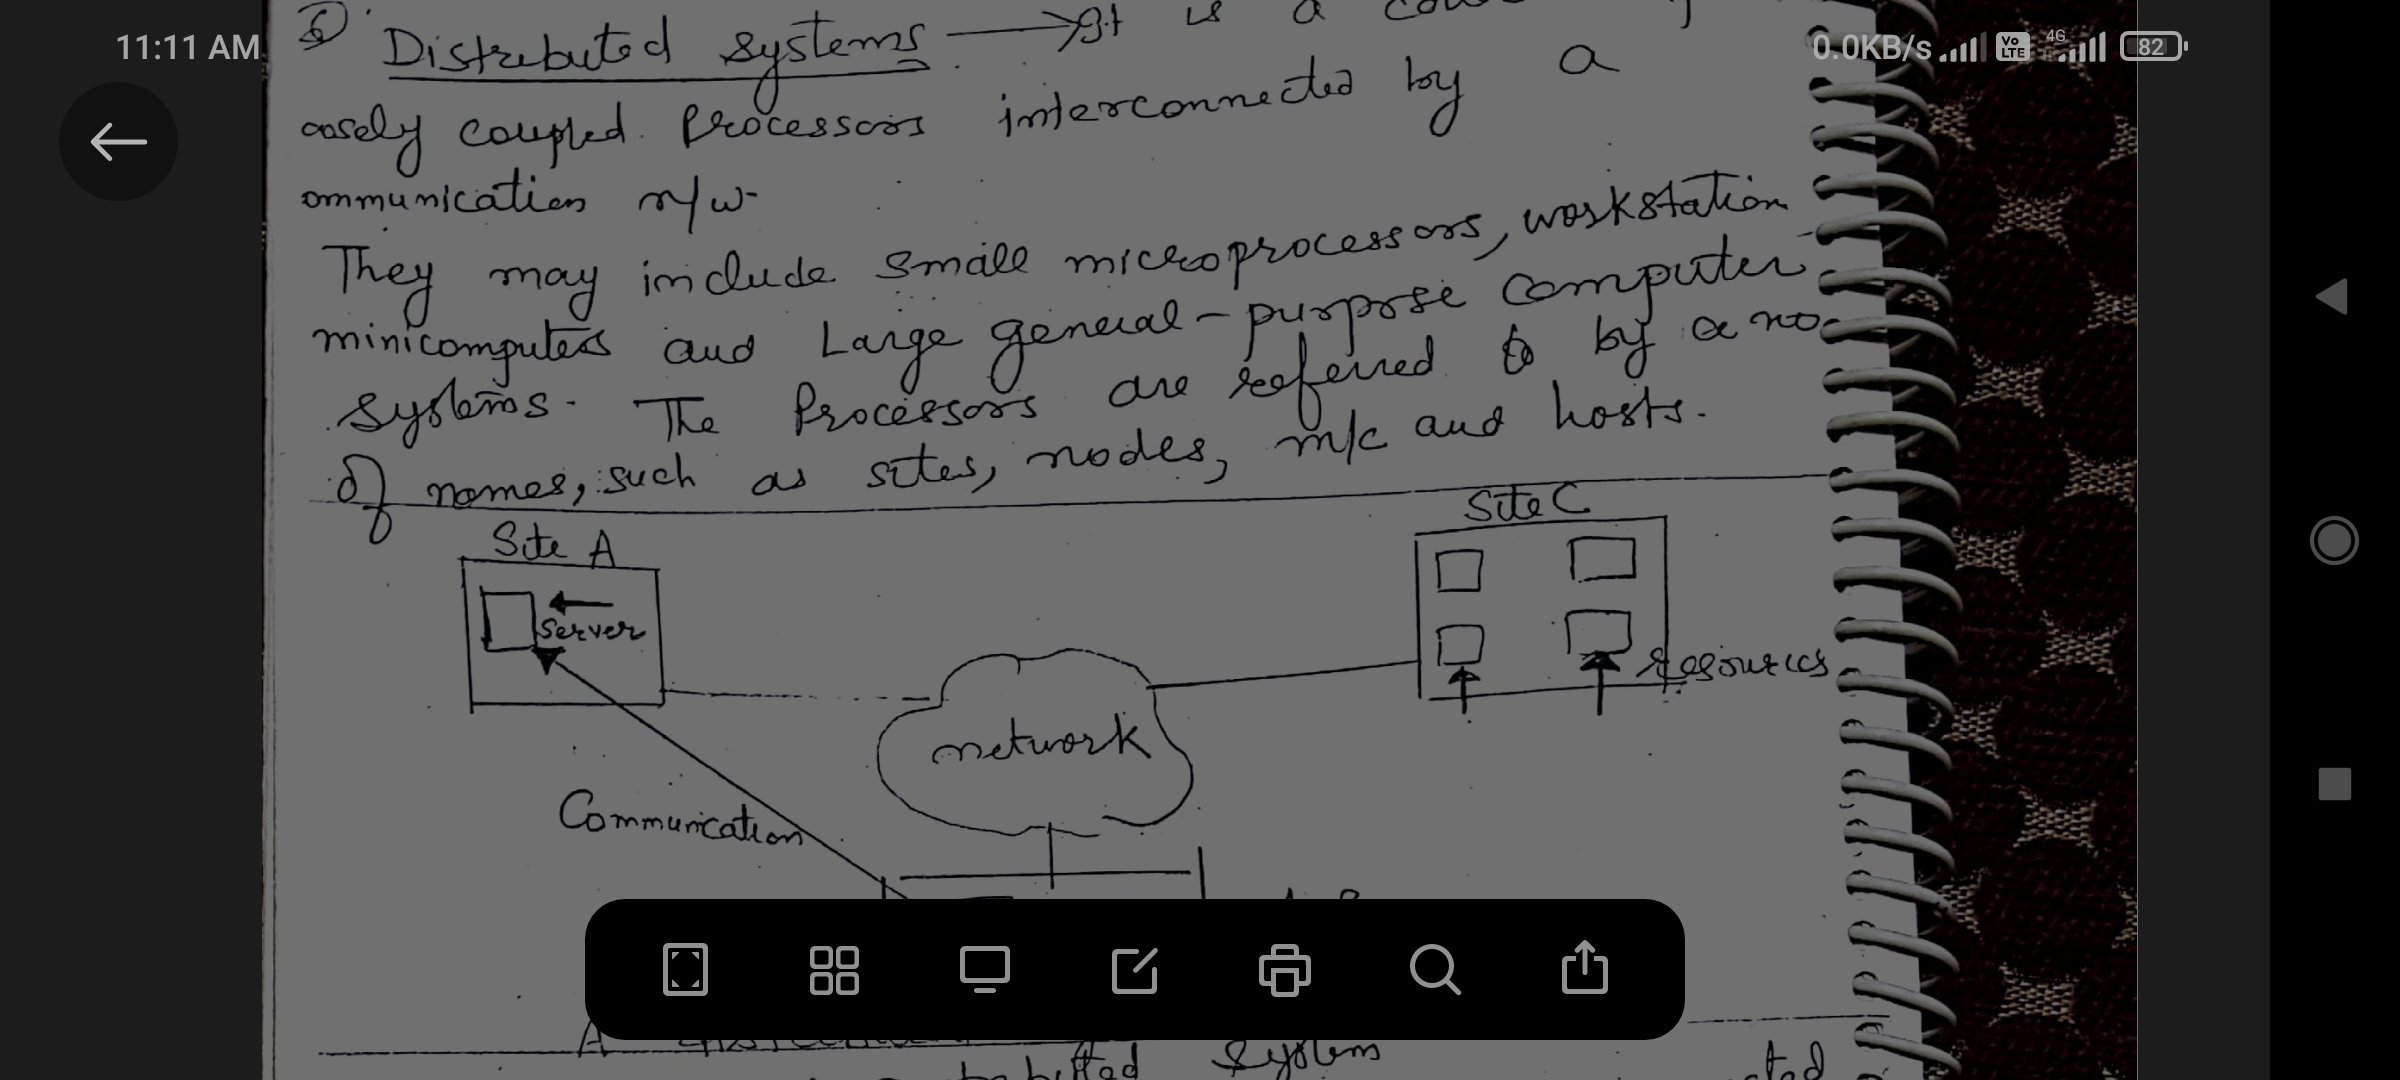 11:11 AM
0.0KB/s
Vo LTE
4G
82
6) Distributed systems → It is a
oosely coupled Processors interconnected by a
ommunication n/w
They may include small microprocessors, workstation
minicomputers and Large general-purpose computer
systems. The Processors are referred to by a no
of names, such as sites, nodes, m/c and hosts.
Site A
Site C
Server
resources
network
Communication
A
System